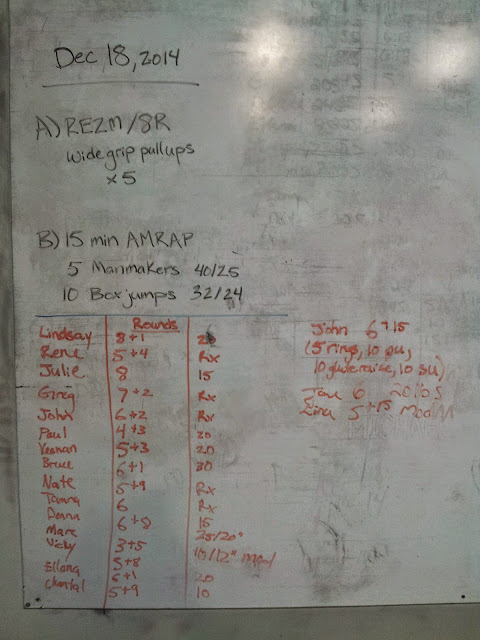 Dec 18, 2014
A) REZM/8R
wide grip pullups
x 5
B) 15 min AMRAP
5 Manmakers 40/25
10 Box jumps 32/24
Rounds
Lindsay 8+1
Rene 5+4 Rx
Julie 8 15
Greg 7+2 Rx
John 6+2 Rx
Paul 4+3 20
Yeehan 5+3 20
Bruce 6+1 30
Nate 5+9 Rx
Tanna 6 Rx
Donna 6+8 15
Marc 25/20"
Vicky 3+5 10/12" mod
Ellana 5+8
6+1 20
Chantal 5+9 10
John 6+15
(5 rings, 10 pu,
10 gluteraise, 10 su)
Jane 6 20lbs
5+15 Mod